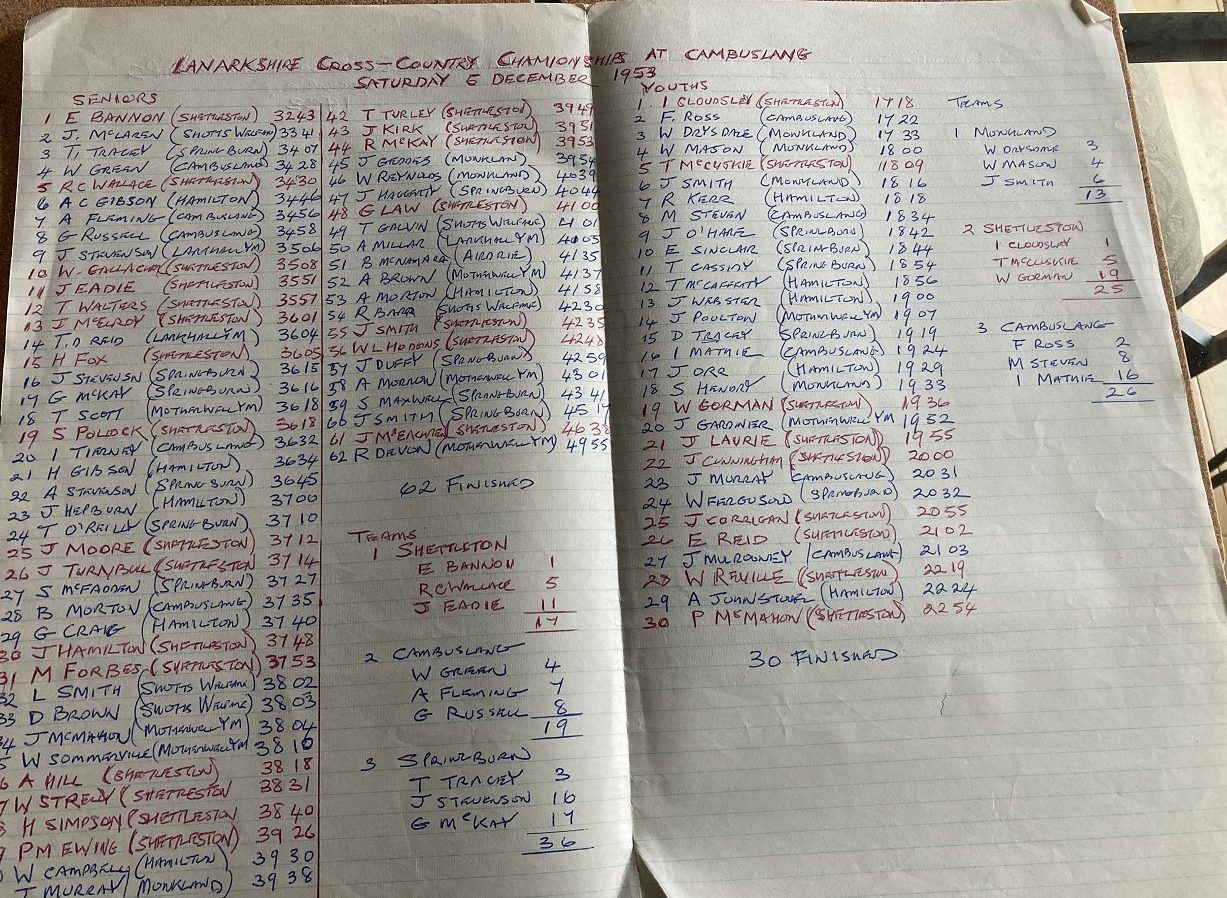 LANARKSHIRE CROSS-COUNTRY CHAMIONSHIPS AT CAMBUSLANG
SATURDAY 5 DECEMBER 1953
SENIORS
1 E BANNON (SHETTLESTON) 3243
2 J. MCLAREN (SHOTTS WELFARE) 3341
3 T. TRACEY (SPRINGBURN) 3407
4 W GREEN (CAMBUSLANG) 3428
5 R C WALLACE (SHETTLESTON) 3430
6 A C GIBSON (HAMILTON) 3446
7 A FLEMING (CAMBUSLANG) 3456
8 G RUSSELL (CAMBUSLANG) 3458
9 J STEVENSON (LARKHALL YM) 3506
10 W. GALLAGHER (SHETTLESTON) 3508
11 J EADIE (SHETTLESTON) 3551
12 T WALTERS (SHETTLESTON) 3557
13 J MCELROY (SHETTLESTON) 3601
14 T.D REID (LARKHALL YM) 3604
15 H FOX (SHETTLESTON) 3605
16 J STEVENSN (SPRINGBURN) 3615
17 G MCKAY (SPRINGBURN) 3616
18 T SCOTT (MOTHERWELL YM) 3618
19 S POLLOCK (SHETTLESTON) 3618
20 I TIERNEY (CAMBUSLANG) 3632
21 H GIBSON (HAMILTON) 3634
22 A STEVENSON (SPRINGBURN) 3645
23 J HEPBURN (HAMILTON) 3700
24 T O'REILLY (SPRINGBURN) 3710
25 J MOORE (SHETTLESTON) 3712
26 J TURNBULL (SHETTLESTON) 3714
27 S MCFADDEN (SPRINGBURN) 3727
28 B MORTON (CAMBUSLANG) 3735
29 G CRAIG (HAMILTON) 3740
30 J HAMILTON (SHETTLESTON) 3748
31 M FORBES (SHETTLESTON) 3753
32 L SMITH (SHOTTS WELFARE) 3802
33 D BROWN (SHOTTS WELFARE) 3803
34 J MCMAHON (MOTHERWELL YM) 3804
5 W SOMMERVILLE (MOTHERWELL YM) 3810
6 A HILL (SHETTLESTON) 3818
7 W STRELY (SHETTLESTON) 3831
8 H SIMPSON (SHETTLESTON) 3840
9 P M EWING (SHETTLESTON) 3926
W CAMPBELL (HAMILTON) 3930
T MURRAY (MONKLAND) 3938
42 T TURLEY (SHETTLESTON) 3949
43 J KIRK (SHETTLESTON) 3951
44 R MCKAY (SHETTLESTON) 3953
45 J GEDDES (MONKLAN) 3954
46 W REYNOLDS (MONKLAND) 4039
47 J HAGGERTY (SPRINGBURN) 4044
48 G LAW (SHETTLESTON) 4100
49 T GALVIN (SHOTTS WELFARE) 4101
50 A MILLAR (LARKHALL YM) 4005
51 B MCNAMARA (AIRDRIE) 4135
52 A BROWN (MOTHERWELL YM) 4137
53 A MORTON (HAMILTON) 4158
54 R BARR (SHOTTS WELFARE) 4230
55 J SMITH (SHETTLESTON) 4235
56 W L HODDNS (SHETTLESTON) 4248
57 J DUFFY (SPRINGBURN) 4259
58 A MORNON (MOTHERWELL YM) 4301
59 S MAXWELL (SPRINGBURN) 4341
60 J SMITH (SPRINGBURN) 4517
61 J MCEACHREN (SHETTLESTON) 4638
62 R DEVON (MOTHERWELL YM) 4955
62 FINISHED
TEAMS
1 SHETTLETON
E BANNON 1
R C WALLACE 5
J EADIE 11
17
2 CAMBUSLANG
W GREEN 4
A FLEMING 7
G RUSSELL 8
19
3 SPRINGBURN
T TRACEY 3
J STEVENSON 16
G MCKAY 17
36
YOUTHS
1 I CLOUDSLEY (SHETTLESTON) 1718
2 F. ROSS (CAMBUSLANG) 1722
3 W DRYSDALE (MONKLAND) 1733
4 W MASON (MONKLAND) 1800
5 T MCCUSKIE (SHETTLESTON) 1809
6 J SMITH (MONKLAND) 1816
7 R KERR (HAMILTON) 1818
8 M STEVEN (CAMBUSLANG) 1834
9 J O'HARE (SPRINGBURN) 1842
10 E SINCLAIR (SPRINGBURN) 1844
11 T CASSIDY (SPRINGBURN) 1854
12 T MCCAFFERTY (HAMILTON) 1856
13 J WEBSTER (HAMILTON) 1900
14 J POULTON (MOTHERWELL YM) 1907
15 D TRACEY (SPRINGBURN) 1919
16 I MATHIE (CAMBUSLANG) 1924
17 J ORR (HAMILTON) 1929
18 S HENDRY (MONKLAND) 1933
19 W GORMAN (SHETTLESTON) 1936
20 J GARDNIER (MOTHERWELL YM) 1952
21 J LAURIE (SHETTLESTON) 1955
22 J CUNNINGHAM (SHETTLESTON) 2000
23 J MURRAY (CAMBUSLANG) 2031
24 W FERGUSON (SPRINGBURN) 2032
25 J CORRIGAN (SHETTLESTON) 2055
26 E REID (SHETTLESTON) 2102
27 J MULROONEY (CAMBUSLANG) 2103
28 W REVILLE (SHETTLESTON) 2219
29 A JOHNSTONE (HAMILTON) 2224
30 P MCMAHON (SHETTLESTON) 2254
30 FINISHED
TEAMS
1 MONKLAND
W DRYSDALE 3
W MASON 4
J SMITH 6
13
2 SHETTLESTON
I CLOUDSLEY 1
T MCCLUSKIE 5
W GORMAN 19
25
3 CAMBUSLANG
F ROSS 2
M STEVEN 8
I MATHIE 16
26